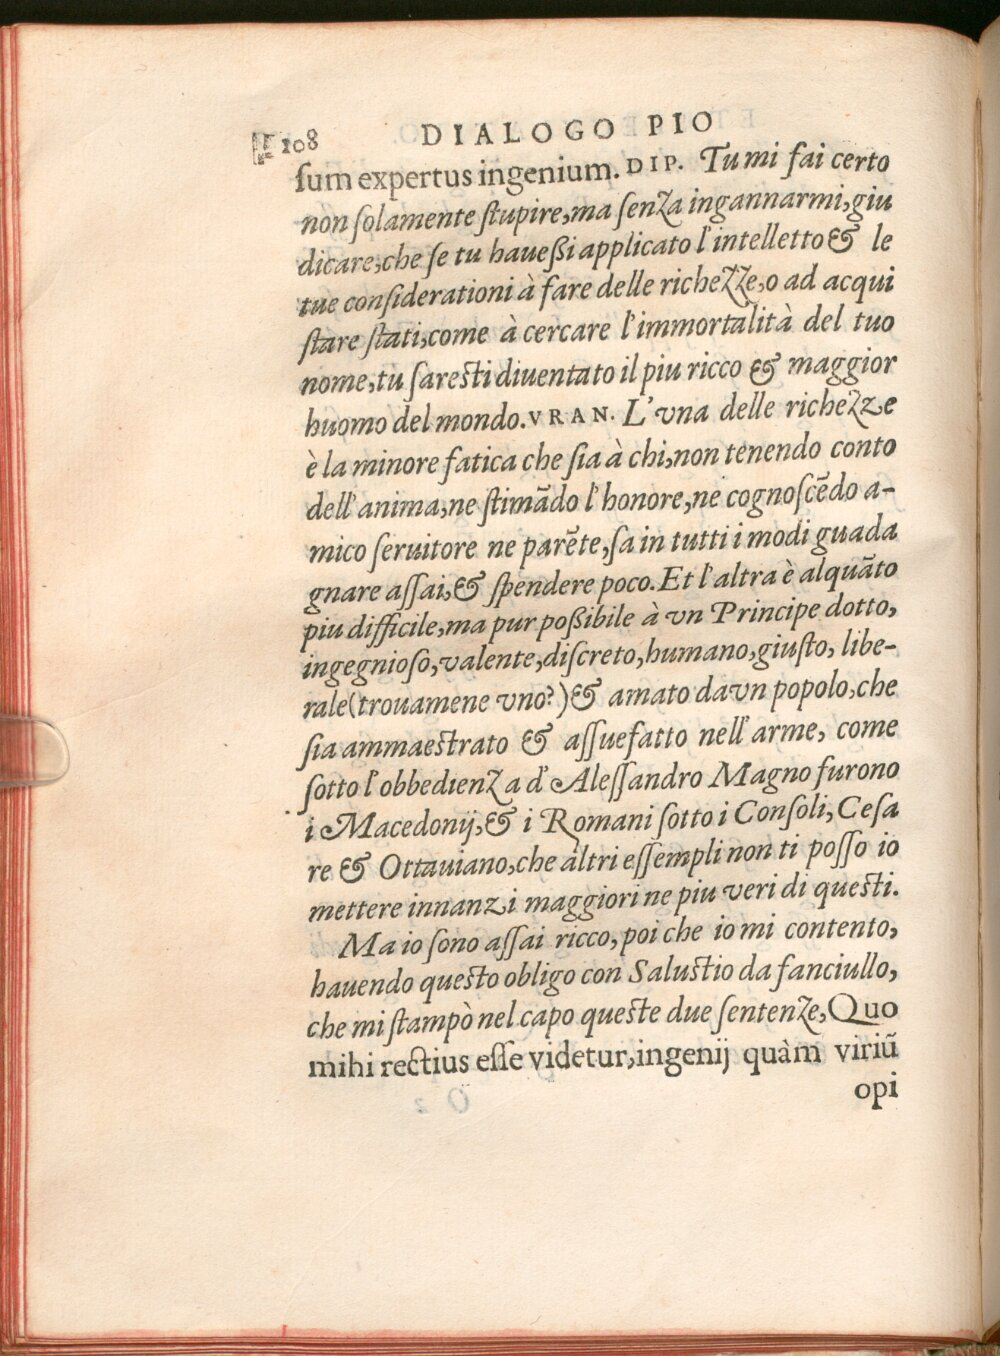 108 DIALOGO PIO
ſum expertus ingenium. DIP. Tu mi fai certo
non ſolamente ſtupire, ma ſenza ingannarmi, giu
dicare, che ſe tu haueßi applicato l'intelletto & le
tue conſiderationi à fare delle richezze, o ad acqui
ſtare ſtati, come à cercare l'immortalità del tuo
nome, tu ſareſti diuentato il piu ricco & maggior
huomo del mondo. VRAN. L'vna delle richezze
è la minore fatica che ſia à chi, non tenendo conto
dell'anima, ne ſtimãdo l'honore, ne cognoſcẽdo a-
mico ſeruitore ne parẽte, ſa in tutti i modi guada
gnare aſſai, & ſpendere poco. Et l'altra è alquãto
piu difficile, ma pur poßibile à vn Principe dotto,
ingegnioſo, valente, diſcreto, humano, giuſto, libe-
rale (trouamene vno?) & amato da vn popolo, che
ſia ammaeſtrato & aſſuefatto nell'arme, come
ſotto l'obbedienza d'Aleſſandro Magno furono
i Macedonij, & i Romani ſotto i Conſoli, Ceſa
re & Ottauiano, che altri eſſempli non ti poſſo io
mettere innanzi maggiori ne piu veri di queſti.
Ma io ſono aſſai ricco, poi che io mi contento,
hauendo queſto obligo con Saluſtio da fanciullo,
che mi ſtampò nel capo queſte due ſentenze, Quo
mihi rectius eſſe videtur, ingenij quàm viriũ
opi